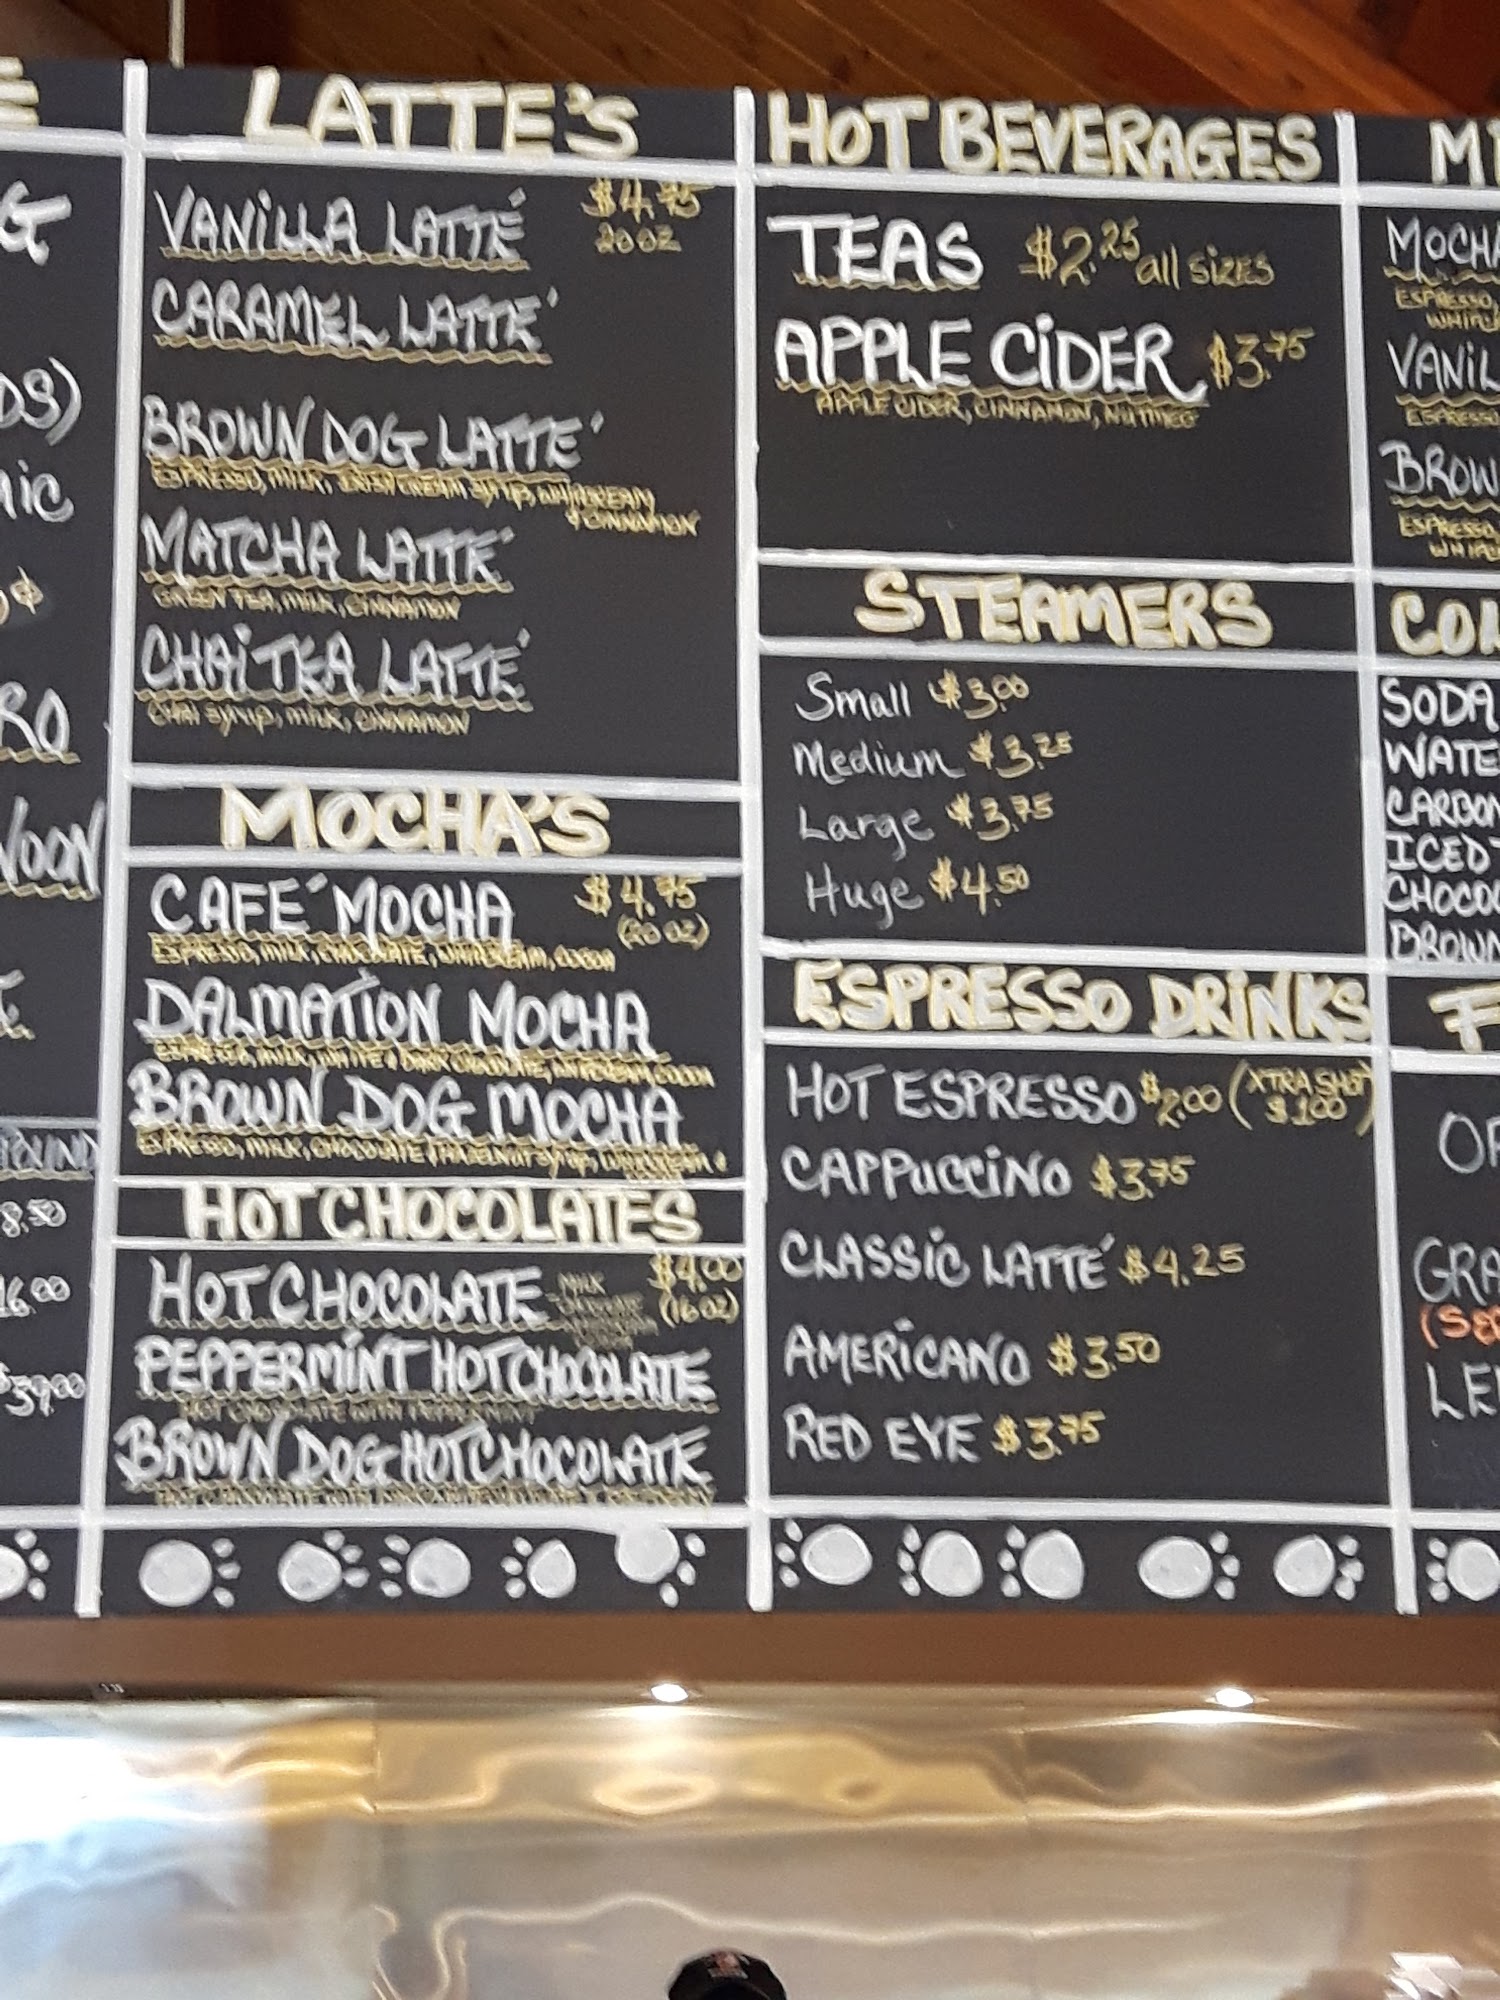 E
G
DS)
NIC
RO
NOON
8.50
16.00
$39.00
LATTE'S
VANILLA LATTÉ $4.75
20 OZ
CARAMEL LATTÉ
BROWN DOG LATTÉ
ESPRESSO, MILK, IRISH CREAM SYRUP, WHIPCREAM
& CINNAMON
MATCHA LATTÉ
GREEN TEA, MILK, CINNAMON
CHAI TEA LATTÉ
CHAI SYRUP, MILK, CINNAMON
MOCHA'S
CAFÉ MOCHA $4.75
(20 OZ)
ESPRESSO, MILK, CHOCOLATE, WHIPCREAM, COCOA
DALMATION MOCHA
ESPRESSO, MILK, WHITE & DARK CHOCOLATE, WHIPCREAM, COCOA
BROWN DOG MOCHA
ESPRESSO, MILK, CHOCOLATE, HAZELNUT SYRUP, WHIPCREAM &
HOT CHOCOLATES
HOT CHOCOLATE $4.00
(16 OZ)
PEPPERMINT HOT CHOCOLATE
HOT CHOCOLATE WITH PEPPERMINT
BROWN DOG HOT CHOCOLATE
HOT BEVERAGES
TEAS $2.25 all SIZES
APPLE CIDER $3.75
APPLE CIDER, CINNAMON, NUTMEG
STEAMERS
Small $3.00
Medium $3.25
Large $3.75
Huge $4.50
ESPRESSO DRINKS
HOT ESPRESSO $2.00 (XTRA SHOT
$1.00)
CAPPUCCINO $3.75
CLASSIC LATTÉ $4.25
AMERICANO $3.50
RED EYE $3.75
MOCHA
ESPRESSO,
VANIL
ESPRESSO
BROW
ESPRESSO,
SODA
WATE
CARBON
ICED T
CHOCO
BROWN
F
GRA
LE